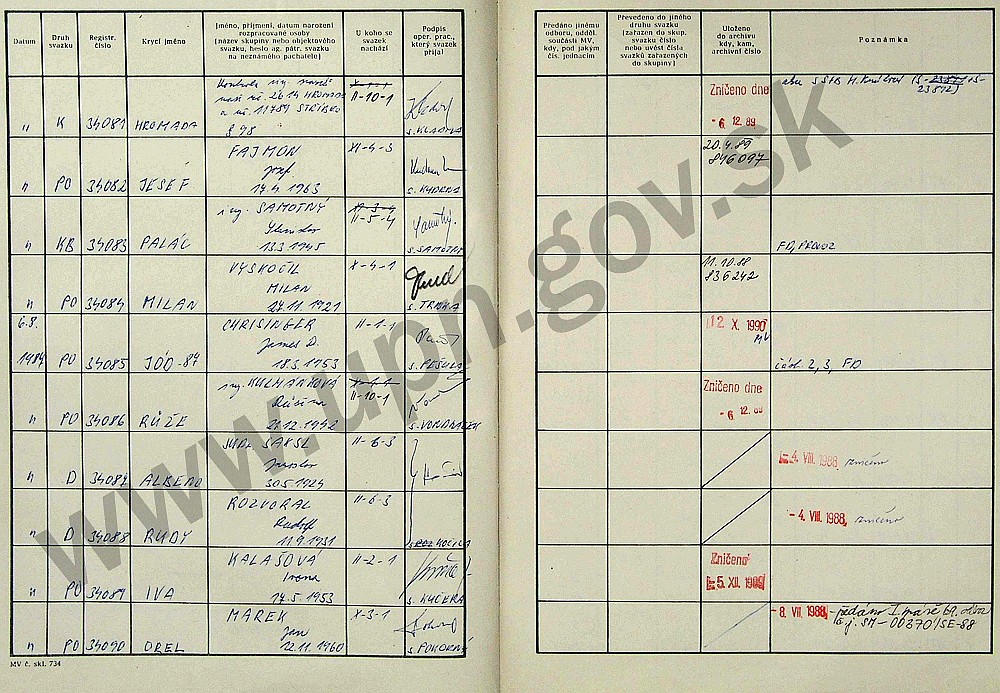 Datum
Druh
svazku
Registr.
číslo
Krycí jméno
Jméno, příjmení, datum narození
rozpracované osoby
(název skupiny nebo objektového
svazku, heslo ag. pátr. svazku
na neznámého pachatele)
U koho se
svazek
nachází
Podpis
oper. prac.,
který svazek
přijal
Předáno jinému
odboru, odděl.
součásti MV,
kdy, pod jakým
čís. jednacím
Převedeno do jiného
druhu svazku
(zařazen do skup.
svazku číslo
nebo uvést čísla
svazků zařazených
do skupiny)
Uloženo
do archivu
kdy, kam,
archivní číslo
Poznámka
" K 34081 HROMADA
II-10-1
s. KLADIVA
§ 98
Zničeno dne
- 6. 12. 89
23872)
" PO 34082 JESEF
FAJMON
Josef
14.4.1963
XI-4-3
s. KUDRNA
20.4.89
846097
" KB 34083 PALÁC
ing. SAMOTNÝ
13.3.1945
II-5-4
s. SAMOTNÝ
FD, PROVOZ
" PO 34084 MILAN
VYSKOČIL
MILAN
24.11.1921
X-4-1
s. TRNKA
11.10.88
836242
6.8.
1984 PO 34085 JÓD-84
CHRISINGER
James D.
18.3.1953
II-1-1
s. PEŠULA
12. X. 1990
MV
část 2, 3, FD
" PO 34086 RŮŽE
ing. KULHÁNKOVÁ
21.12.1942
II-10-1
Zničeno dne
- 6. 12. 89
" D 34087 ALBENO
JUDr. SAKSL
Jaroslav
30.5.1924
II-6-3
- 4. VIII. 1988 zničeno
" D 34088 RUDY
ROZVORAL
Rudolf
11.9.1931
II-6-3
- 4. VIII. 1988 zničeno
" PO 34089 IVA
KALAŠOVÁ
Ivana
14.5.1953
II-2-1
s. KUČERA
Zničeno
- 5. XII. 1989
" PO 34090 OREL
MAREK
Jan
12.11.1960
X-3-1
s. POKORNÝ
- 8. VII. 1988
č.j. SM-00370/SE-88
MV č. skl. 734
www.upn.gov.sk